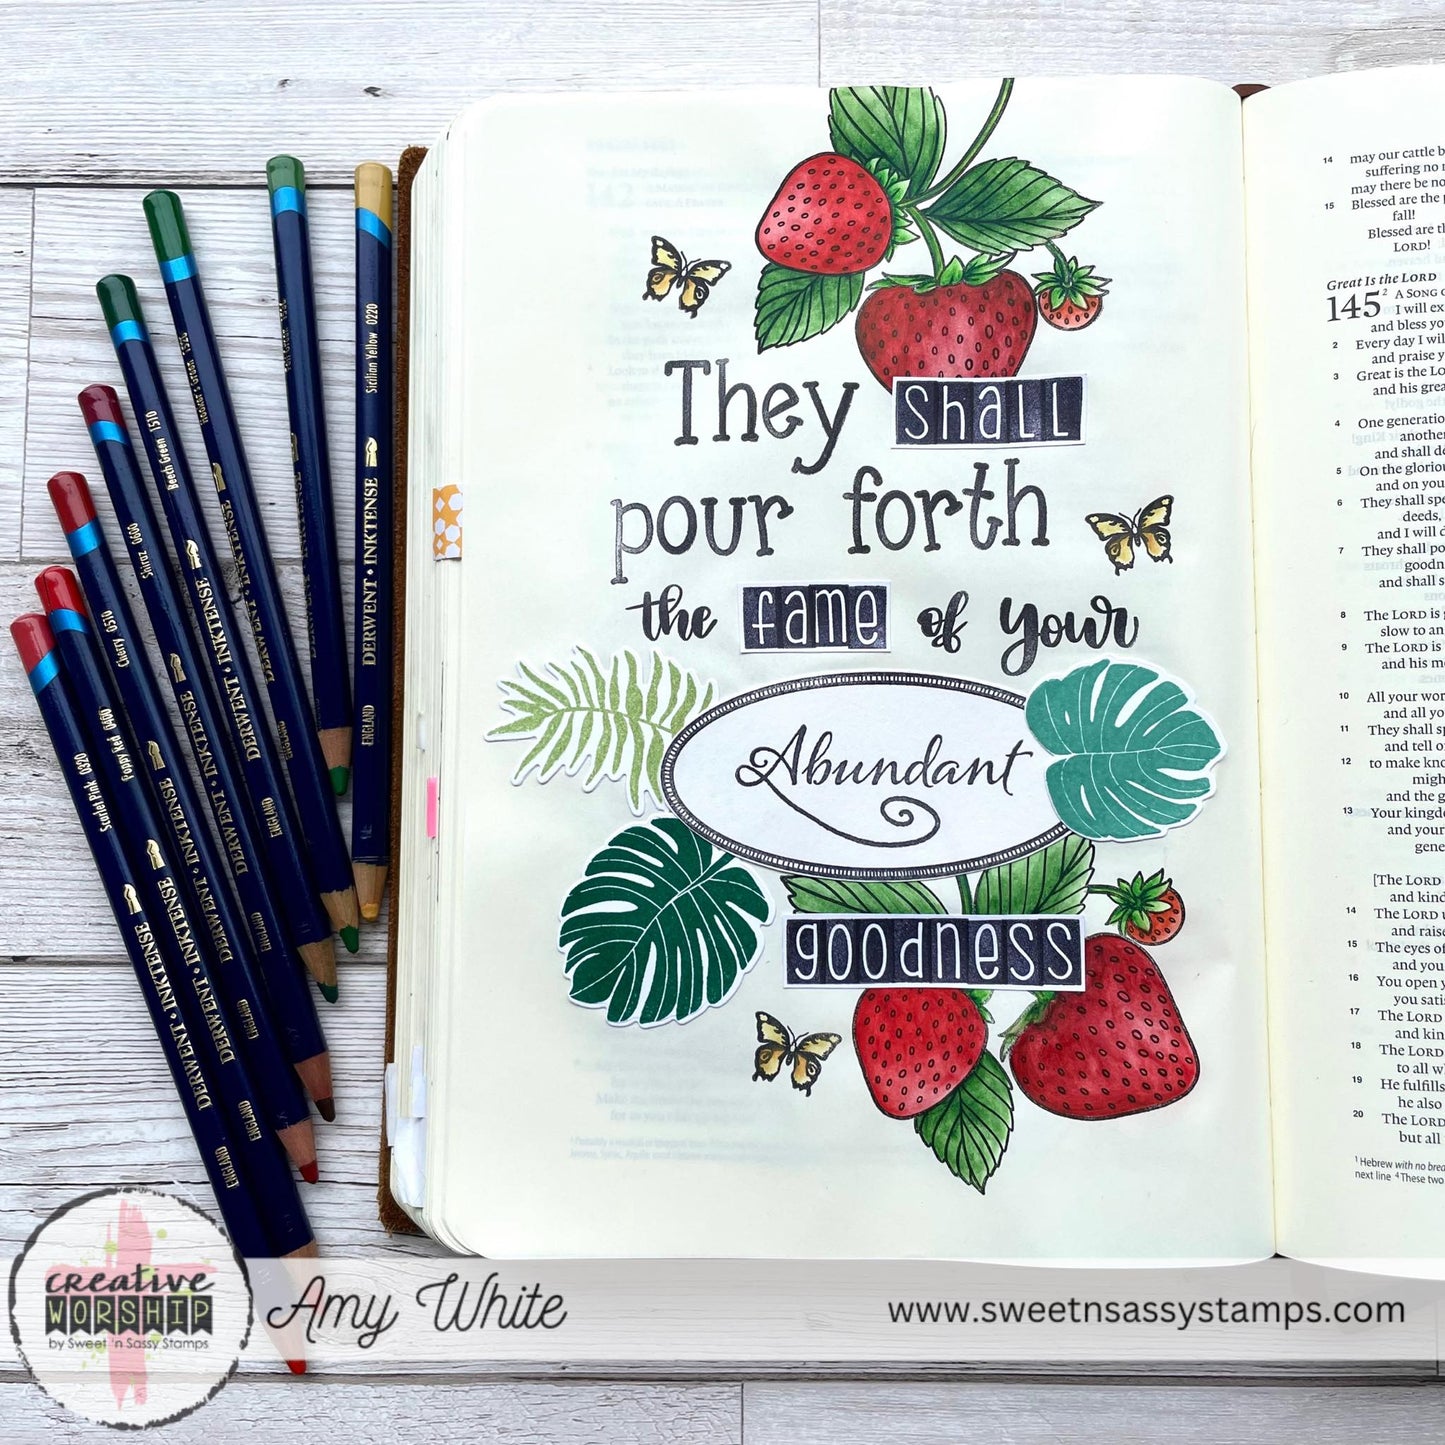 They shall
pour forth
the fame of your
Abundant
goodness
Scarlet Pink 0320
DERWENT • INKTENSE
ENGLAND
Poppy Red 0400
DERWENT • INKTENSE
ENGLAND
Cherry 0510
DERWENT • INKTENSE
ENGLAND
Shiraz 0600
DERWENT • INKTENSE
ENGLAND
Beech Green 1510
DERWENT • INKTENSE
ENGLAND
DERWENT • INKTENSE
Sicilian Yellow 0220
DERWENT • INKTENSE
ENGLAND
14 may our cattle b
suffering no
may there be no
15 Blessed are the
fall!
Blessed are th
LORD!
Great Is the LORD
145 2 A SONG
I will ex
and bless yo
2 Every day I wil
and praise y
3 Great is the Lo
and his grea
4 One generatio
another
and shall de
5 On the glorio
and on you
6 They shall spe
deeds,
and I will d
7 They shall po
goodn
and shall s
8 The LORD is
slow to an
9 The LORD is
and his me
10 All your wor
and all yo
11 They shall sp
and tell o
12 to make kno
migh
and the g
13 Your kingd
and your
gene
[The LORD
and kind
14 The LORD
and raise
15 The eyes of
and you
16 You open y
you satis
17 The LORD
and kin
18 The LORD
to all w
19 He fulfills
he also
20 The LORD
but all
1 Hebrew with no brea
next line 4 These two
creative
WORSHIP
by Sweet 'n Sassy Stamps
Amy White
www.sweetnsassystamps.com